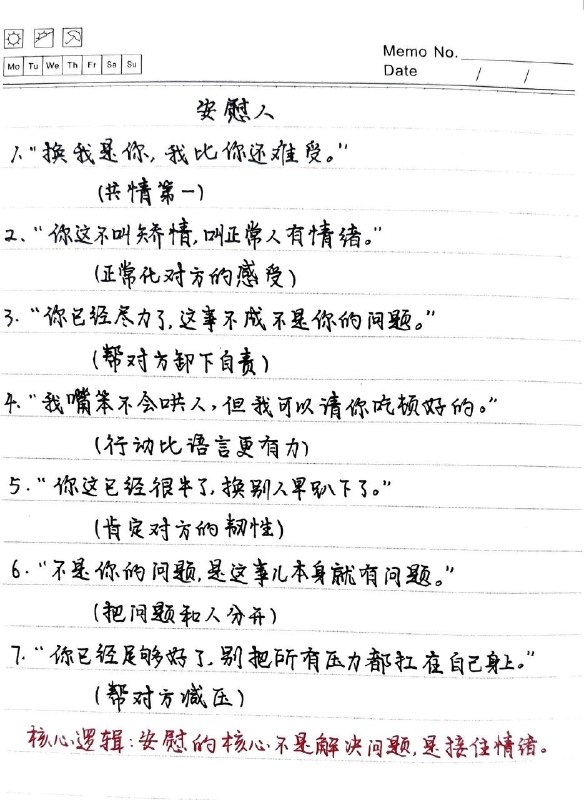 Memo No.
Mo Tu We Th Fr Sa Su
Date / /
安慰人
1."换我是你,我比你还难受。"
(共情第一)
2."你这不叫矫情,叫正常人有情绪。"
(正常化对方的感受)
3."你已经尽力了,这事不成不是你的问题。"
(帮对方卸下自责)
4."我嘴笨不会哄人,但我可以请你吃顿好的。"
(行动比语言更有力)
5."你这已经很牛了,换别人早趴下了。"
(肯定对方的韧性)
6."不是你的问题,是这事儿本身就有问题。"
(把问题和人分开)
7."你已经足够好了,别把所有压力都扛在自己身上。"
(帮对方减压)
核心逻辑:安慰的核心不是解决问题,是接住情绪。